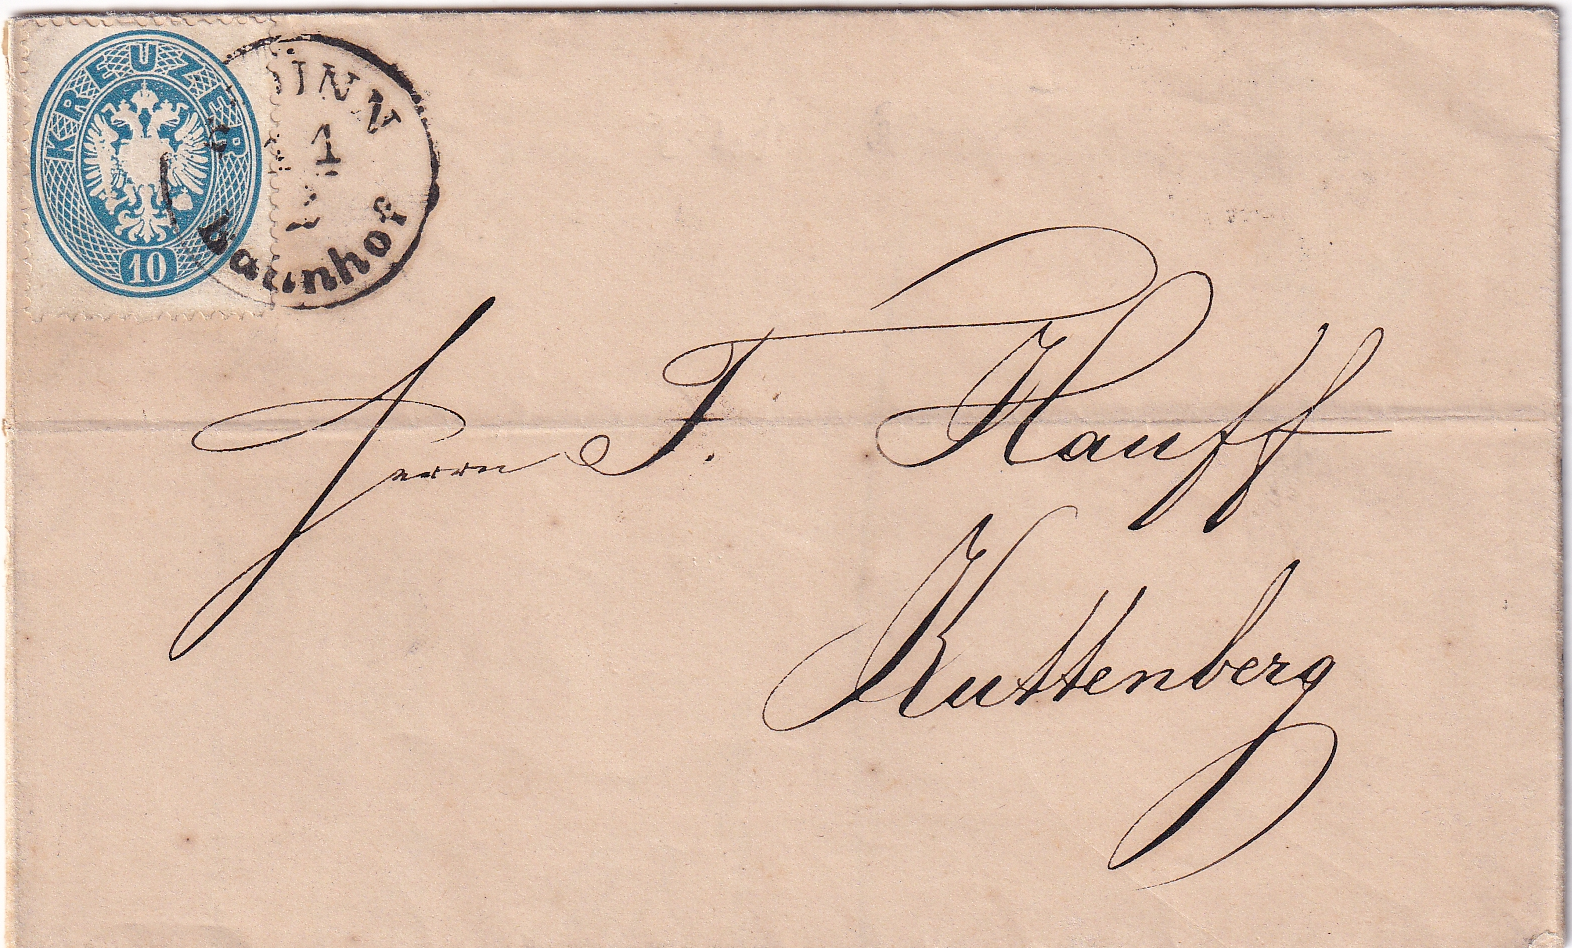 KREUZER
10
1
Bahnhof
Herrn F. Hauff
Kuttenberg